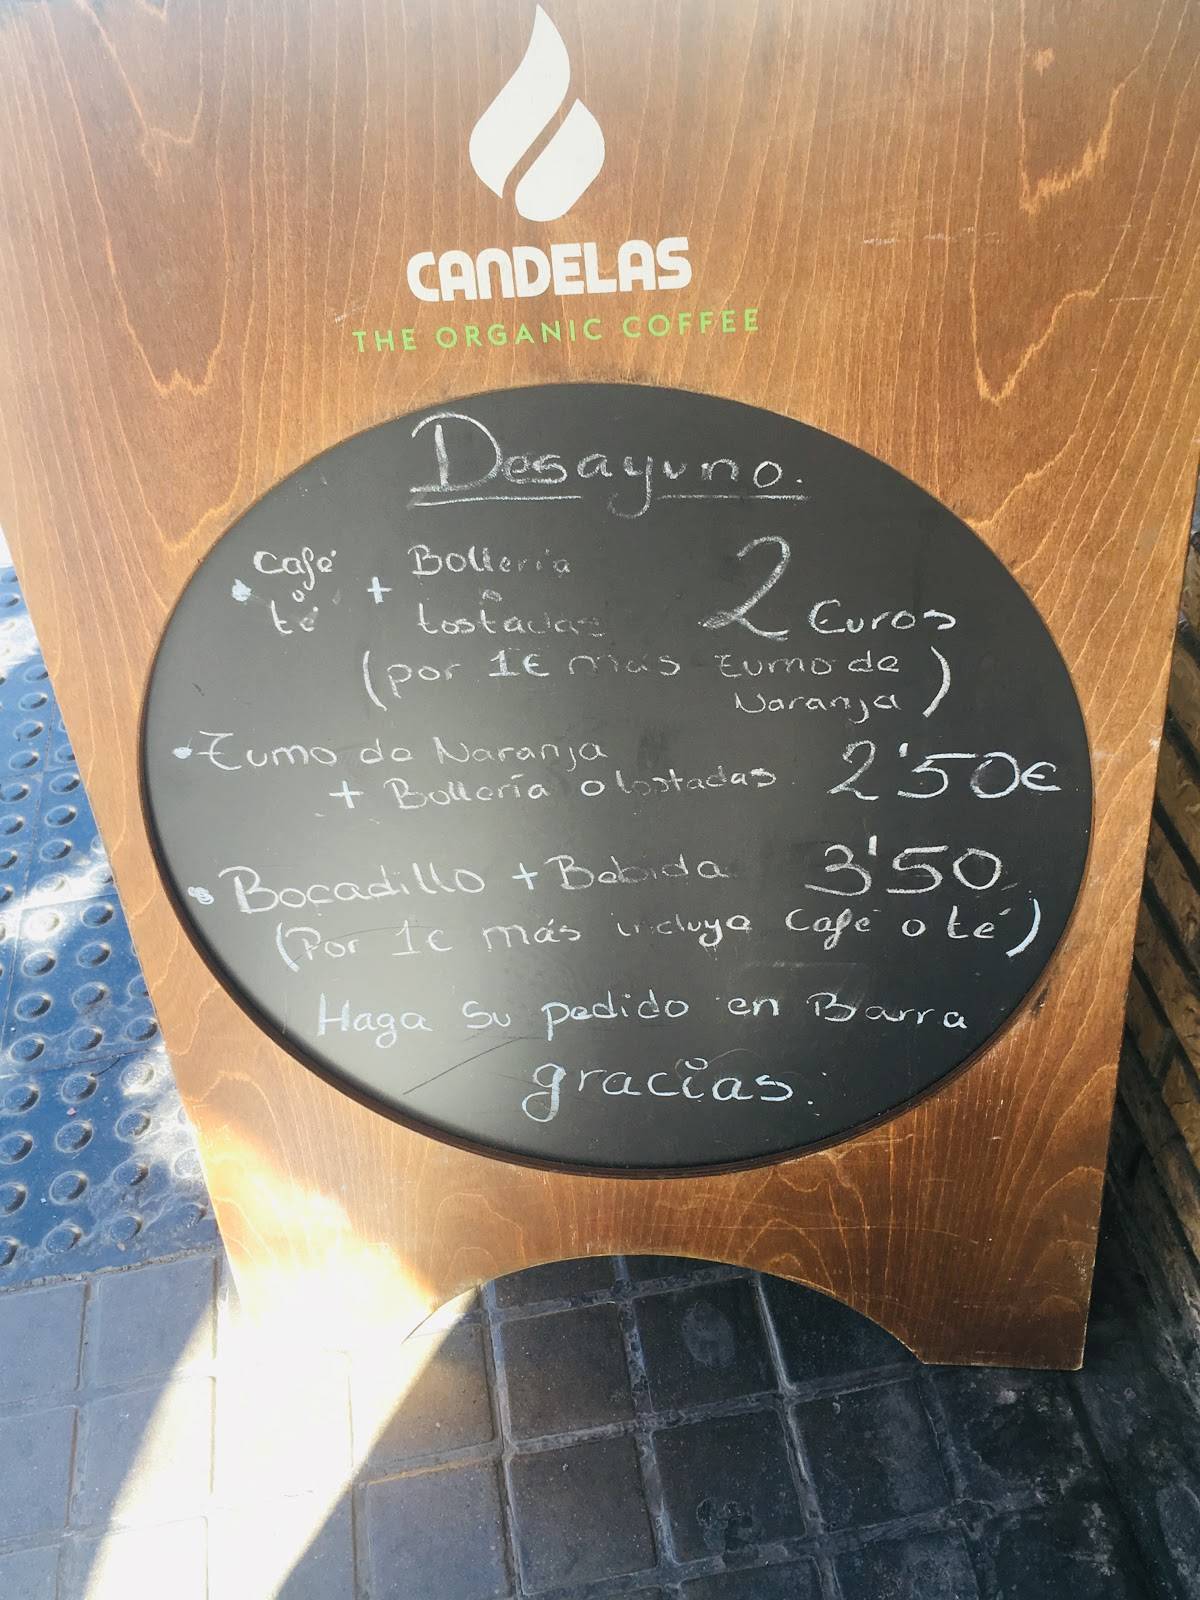 CANDELAS
THE ORGANIC COFFEE
Desayuno.
Café + Bollería
o o
té tostadas 2 Euros
(por 1€ más Zumo de
Naranja)
Zumo de Naranja
+ Bollería o tostadas 2'50€
Bocadillo + Bebida 3'50
(Por 1€ más incluye Café o té)
Haga su pedido en Barra
gracias.